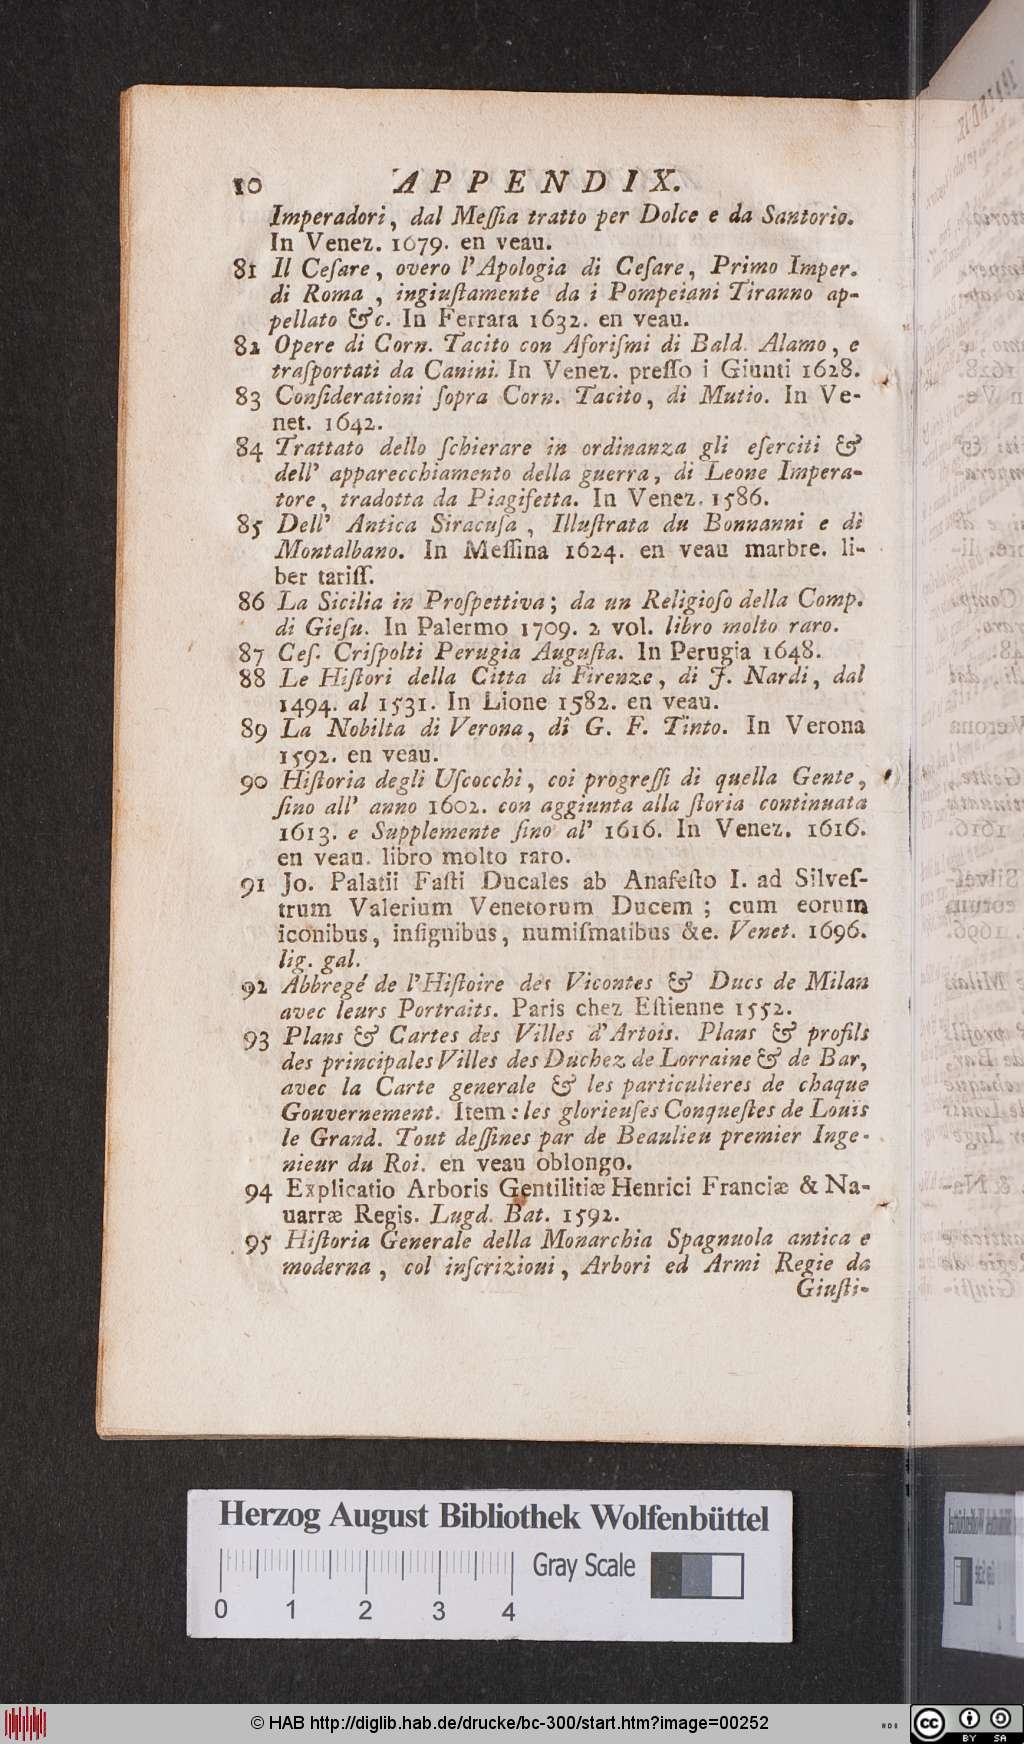 10 APPENDIX.
Imperadori, dal Meſſia tratto per Dolce e da Santorio.
In Venez. 1679. en veau.
81 Il Ceſare, overo l'Apologia di Ceſare, Primo Imper.
di Roma, ingiuſtamente da i Pompeiani Tiranno ap-
pellato &c. In Ferrara 1632. en veau.
82 Opere di Corn. Tacito con Aforiſmi di Bald. Alamo, e
traſportati da Canini. In Venez. preſſo i Giunti 1628.
83 Conſiderationi ſopra Corn. Tacito, di Mutio. In Ve-
net. 1642.
84 Trattato dello ſchierare in ordinanza gli eſerciti &
dell' apparecchiamento della guerra, di Leone Impera-
tore, tradotta da Piagifetta. In Venez. 1586.
85 Dell' Antica Siracuſa, Illuſtrata du Bonnanni e di
Montalbano. In Meſſina 1624. en veau marbre. li-
ber tariſſ.
86 La Sicilia in Proſpettiva; da un Religioſo della Comp.
di Gieſu. In Palermo 1709. 2 vol. libro molto raro.
87 Ceſ. Criſpolti Perugia Auguſta. In Perugia 1648.
88 Le Hiſtori della Citta di Firenze, di J. Nardi, dal
1494. al 1531. In Lione 1582. en veau.
89 La Nobilta di Verona, di G. F. Tinto. In Verona
1592. en veau.
90 Hiſtoria degli Uſcocchi, coi progreſſi di quella Gente,
ſino all' anno 1602. con aggiunta alla ſtoria continuata
1613. e Supplemente ſino al' 1616. In Venez. 1616.
en veau. libro molto raro.
91 Jo. Palatii Faſti Ducales ab Anafeſto I. ad Silveſ-
trum Valerium Venetorum Ducem; cum eorum
iconibus, inſignibus, numiſmatibus &e. Venet. 1696.
lig. gal.
92 Abbregé de l'Hiſtoire des Vicontes & Ducs de Milan
avec leurs Portraits. Paris chez Eſtienne 1552.
93 Plans & Cartes des Villes d'Artois. Plans & profils
des principales Villes des Duchez de Lorraine & de Bar,
avec la Carte generale & les particulieres de chaque
Gouvernement. Item: les glorieuſes Conqueſtes de Louis
le Grand. Tout deſſines par de Beaulieu premier Inge-
nieur du Roi. en veau oblongo.
94 Explicatio Arboris Gentilitiæ Henrici Franciæ & Na-
uarræ Regis. Lugd. Bat. 1592.
95 Hiſtoria Generale della Monarchia Spagnuola antica e
moderna, col inſcrizioni, Arbori ed Armi Regie da
Giuſti-
Herzog August Bibliothek Wolfenbüttel
Gray Scale
0 1 2 3 4
© HAB http://diglib.hab.de/drucke/bc-300/start.htm?image=00252
cc BY SA